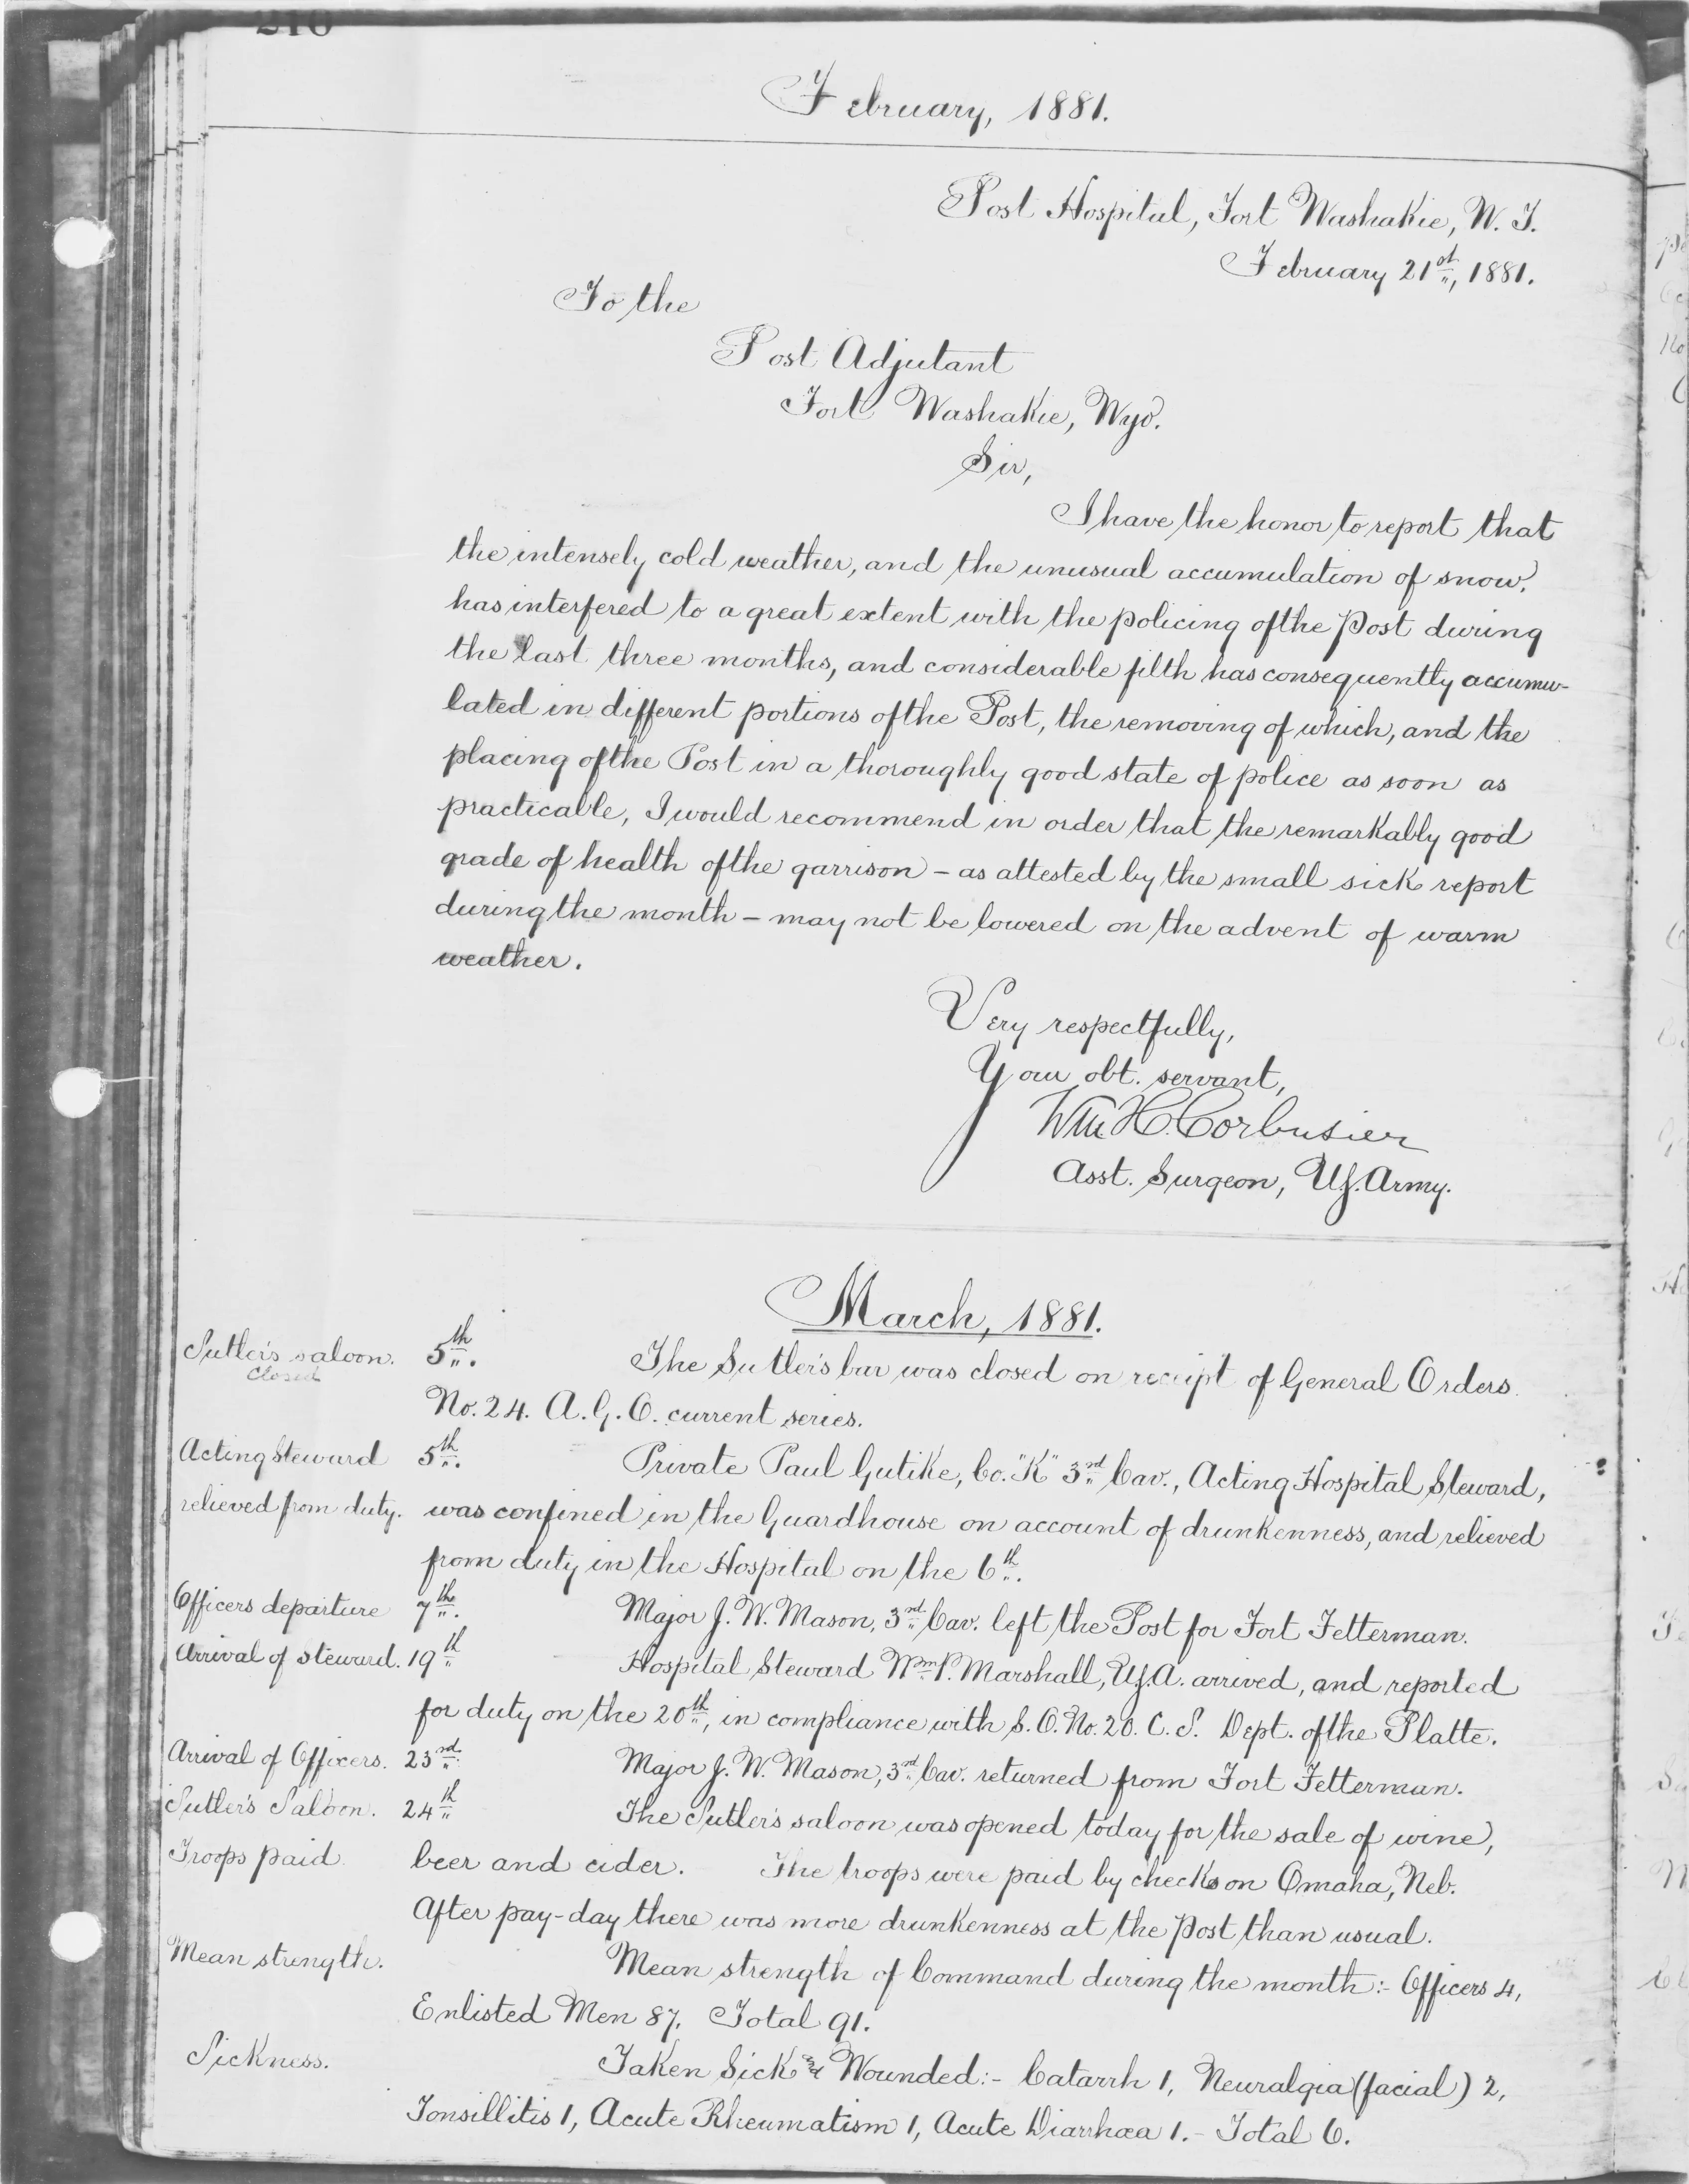 February, 1881.
Post Hospital, Fort Washakie, W. T.
February 21st, 1881.
To the
Post Adjutant
Fort Washakie, Wyo.
Sir,
I have the honor to report that
the intensely cold weather, and the unusual accumulation of snow,
has interfered to a great extent with the policing of the Post during
the last three months, and considerable filth has consequently accumu-
lated in different portions of the Post, the removing of which, and the
placing of the Post in a thoroughly good state of police as soon as
practicable, I would recommend in order that the remarkably good
grade of health of the garrison – as attested by the small sick report
during the month – may not be lowered on the advent of warm
weather.
Very respectfully,
Your obt. servant,
Wm. H. Corbusier
Asst. Surgeon, U.S. Army.
March, 1881.
Sutler's saloon. 5th. The Sutler's bar was closed on receipt of General Orders
Closed
No. 24. A. G. O. current series.
Acting Steward 5th. Private Paul Gutike, Co. "K" 3rd Cav., Acting Hospital Steward,
relieved from duty. was confined in the Guardhouse on account of drunkenness, and relieved
from duty in the Hospital on the 6th.
Officers departure 7th. Major J. W. Mason, 3rd Cav. left the Post for Fort Fetterman.
Arrival of Steward. 19th Hospital Steward Wm. P. Marshall, U.S.A. arrived, and reported
for duty on the 20th, in compliance with S. O. No. 20. C. S. Dept. of the Platte.
Arrival of Officers. 23rd Major J. W. Mason, 3rd Cav. returned from Fort Fetterman.
Sutler's Saloon. 24th The Sutler's saloon was opened today for the sale of wine,
Troops paid beer and cider. The troops were paid by checks on Omaha, Neb.
After pay-day there was more drunkenness at the Post than usual.
Mean strength. Mean strength of Command during the month:- Officers 4,
Enlisted Men 87. Total 91.
Sickness. Taken Sick & Wounded:- Catarrh 1, Neuralgia (facial) 2,
Tonsillitis 1, Acute Rheumatism 1, Acute Diarrhœa 1. – Total 6.